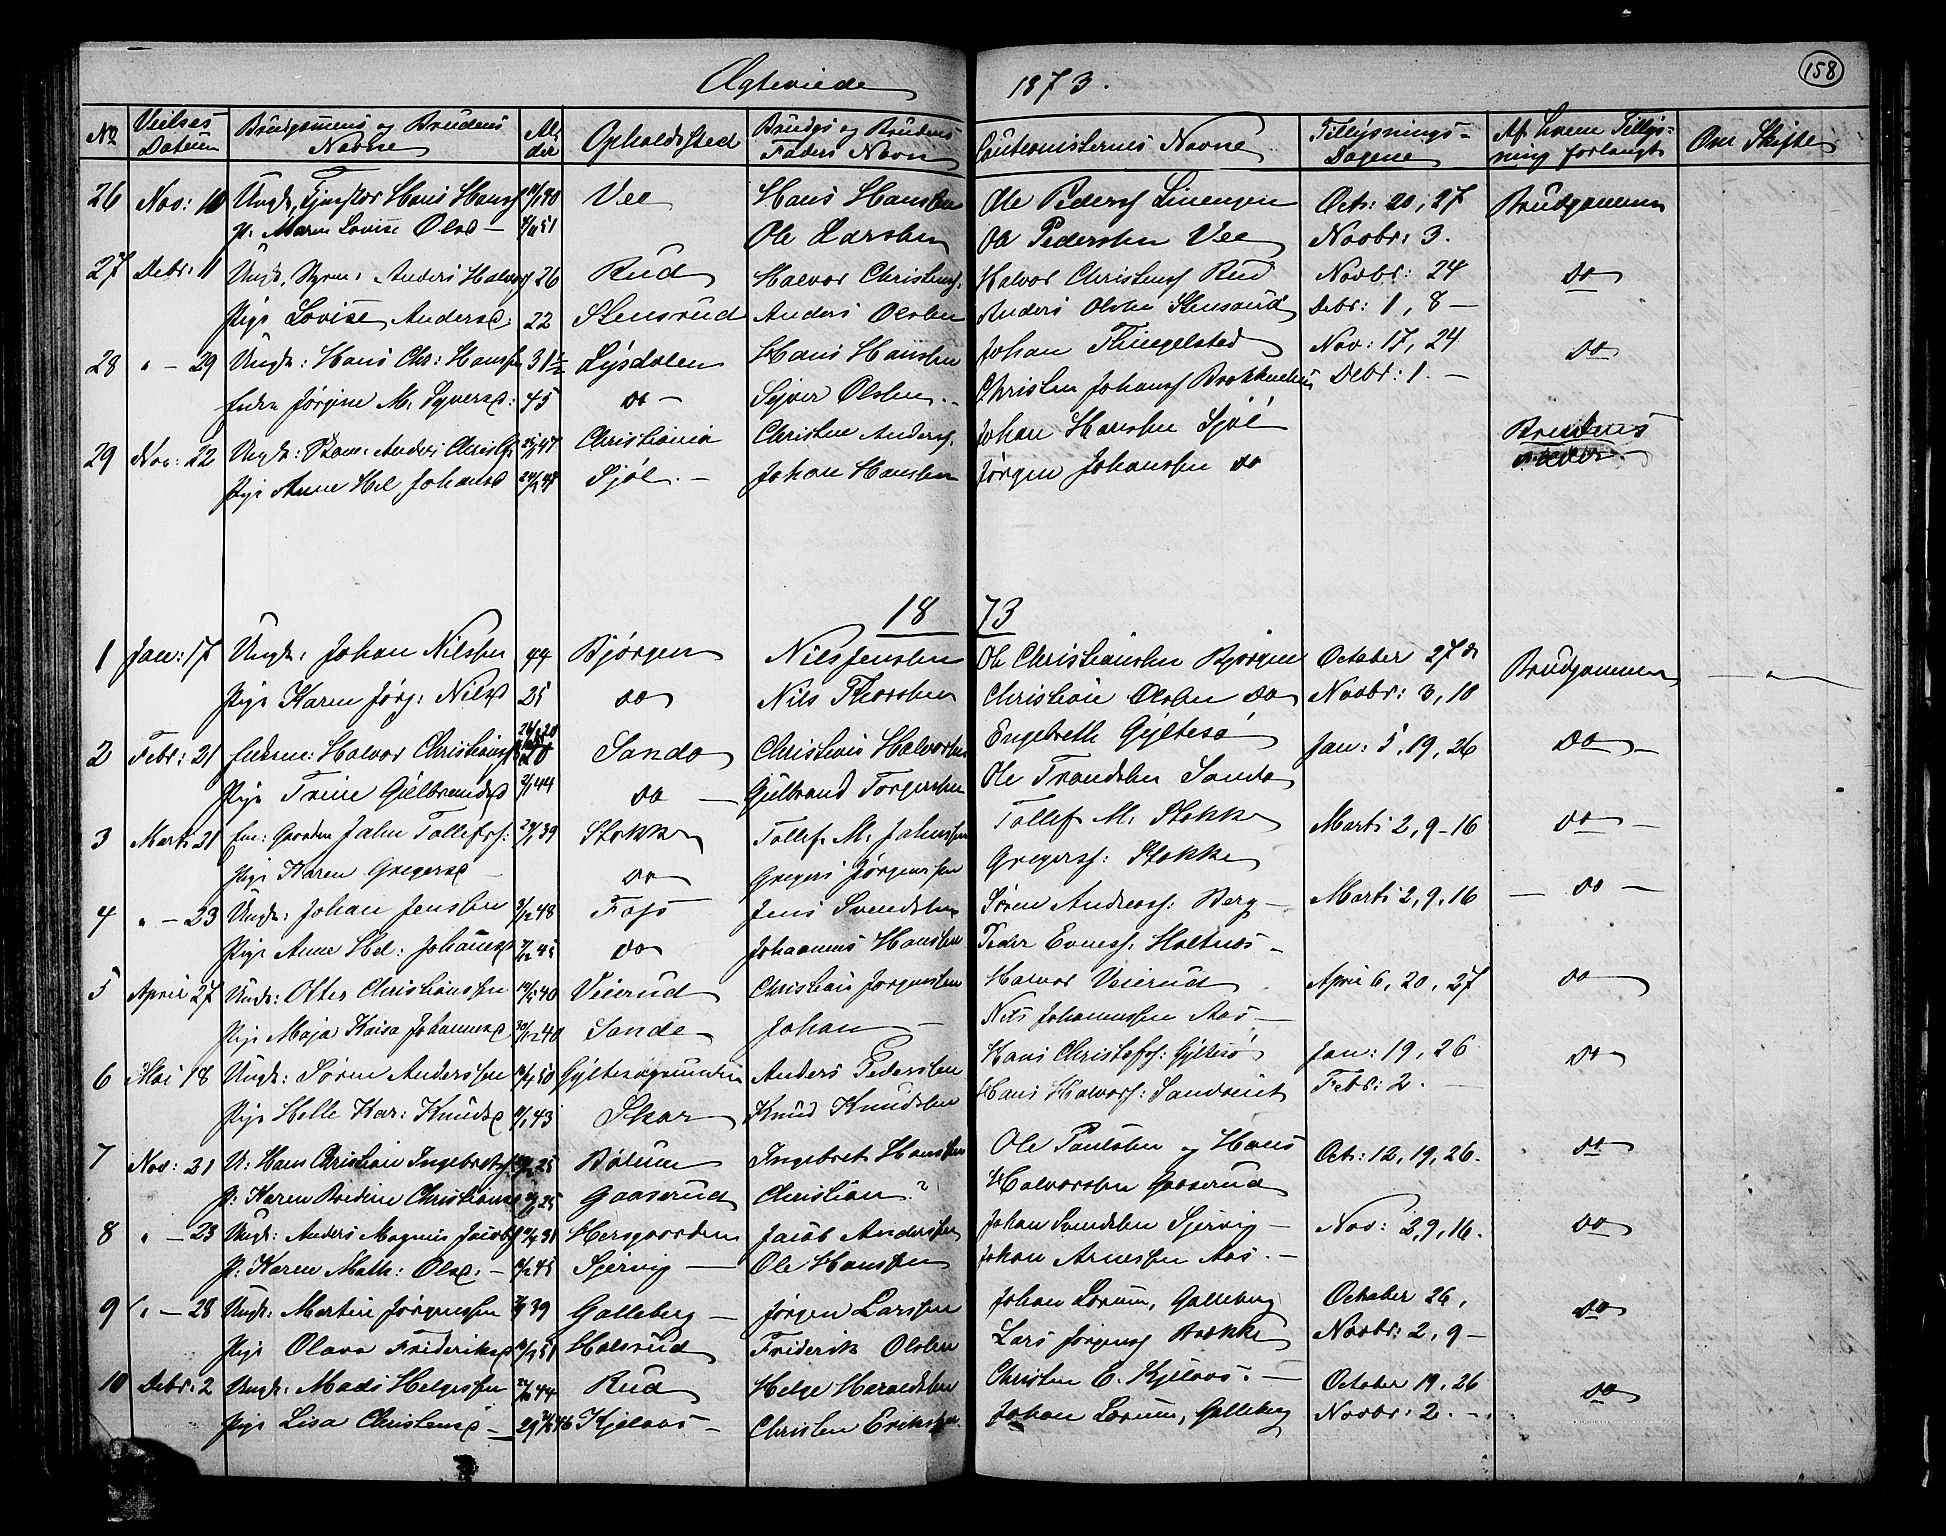 158
Ægteviede 1873.
No Vielses Datum Brudgommens og Brudens Navne Alder Opholdssted Brudgs og Brudens Faders Navn Cautionisternes Navne Tillysnings-Dagene Af hvem Tillysning forlangt Om Skifte
26 Nov: 10 Ungk. Hans Hanss 40 Vee Hans Hanssen Ole Peders Linengen Oct: 20, 27 Brudgommen
P: Maren Lovise Olsd — 51 Ole Larssen Ole Pederssen Vee Novbr: 3.
27 Debr: 11 Ungk. Anders Halvors 26 Rud Halvor Christens. Halvor Christens Rud Novbr: 24 do
Pige Lovise Andersd: 22 Stensrud Anders Olssen Anders Olssen Stensrud Debr: 1, 8 —
28 " — 29 Ungk: Hans Chr: Hanssen 31½ Lysdalen Hans Hanssen Johan Thingelstad Nov: 17, 24 do
Enke Jørgine M. Syversd: 45 do — Syver Olssen. Christen Johanss Brekkenhus Debr: 1. —
29 Nov: 22 Ungk: Anders Christ. 47 Christiania Christen Anderss. Johan Hanssen Sjøl Brudens
Pige Anne Hel Johansd Sjøl. — Johan Hanssen Jørgen Johanssen do
18 73
1 Jan: 17 Ungk: Johan Nilssen 44 Bjørgen Nils Jenssen Ole Christianssen Bjørgen October 27 & Brudgommen — " —
Pige Karen Jørg: Nilsd 25 do Nils Thorssen Christian Olssen do Novbr: 3, 10
2 Febr: 21 Enkem: Halvor Christians Sando Christians Halvorssen Engebreth Gyltesø Jan: 5, 19, 26 do —
Pige Trine Gulbrandsd 44 do — Gulbrand Torgerssen Ole Trondssen Sando
3 Marts 21 Jahn Tollefs: 39 Stokke Tollef M. Jahnssen Tollef M. Stokke Marts 2, 9-16 do —
Pige Karen Gregersd — do Gregers Jørgenssen Gregers: Stokke
4 " — 23 Ungk: Johan Jenssen 48 Foss Jens Svendssen Søren Anderss: Berg — Marts 2, 9, 16 — do —
Pige Anne Hel: Johansd 45 do Johannes Hanssen Peder Evenss: Holtnes —
5 April 27 Ungk: Otter Christianssen 40 Veierud Christian Jørgenssen Halvor Veierud April 6, 20, 27 do
Pige Maja Kaisa Johannesd 40 Sande Johan — Nils Johannessen Aas —
6 Mai 18 Ungk: Søren Anderssen 50 Gyltesøgrunden Anders Pederssen Hans Christofs: Gyltesø Jan: 19, 26 do
Pige Helle Kar: Knudsd 43 Skar Knud Knudssen Hans Halvors: Sandveit Febr: 2. —
7 Nov: 21 U: Hans Christian Ingebretss 25 Bølum Ingebret Hanssen Ole Paulssen og Hans Oct: 12, 19, 26. do
P: Karen Bredine Christiansd 25 Gaaserud Christian? Halvorssen Gaaserud
8 " — 23 Ungk: Anders Magnus Jacobs 31 Hersgaarden Jacob Anderssen Johan Svendssen Sjervig — Nov: 2, 9, 16. do
P: Karen Math: Olsd. — 45 Sjervig — Ole Hanssen Johan Arnessen Aas. —
9 " — 28 Ungk: Martin Jørgenssen 39 Galleberg — Jørgen Larssen Johan Lorum, Galleberg October 26, do
Pige Olava Frideriksd 51 Holsrud Friderik Olssen Lars Jørgens Brække Novbr: 2, 9 —
10 Debr: 2 Ungk: Mads Helgessen 44 Rud Helge Heraldssen Christen E. Kjelaas. — October 19, 26 do
Pige Lisa Christensd — 29 46 Kjelaas — Christen Erikssen. Johan Lorum, Galleberg Novbr: 2. —